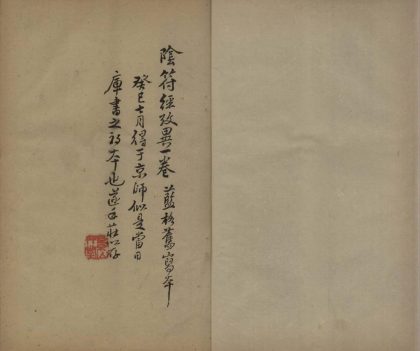 陰符經攷異一卷 藍格舊寫本
癸巳七月得于京師似是當日
庫書之初本也莲手莊以存